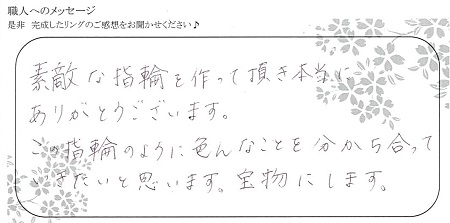 職人へのメッセージ
是非 完成したリングのご感想をお聞かせください♪
素敵な指輪を作って頂き本当に
ありがとうございます。
この指輪のように色んなことを分かち合って
いきたいと思います。宝物にします。